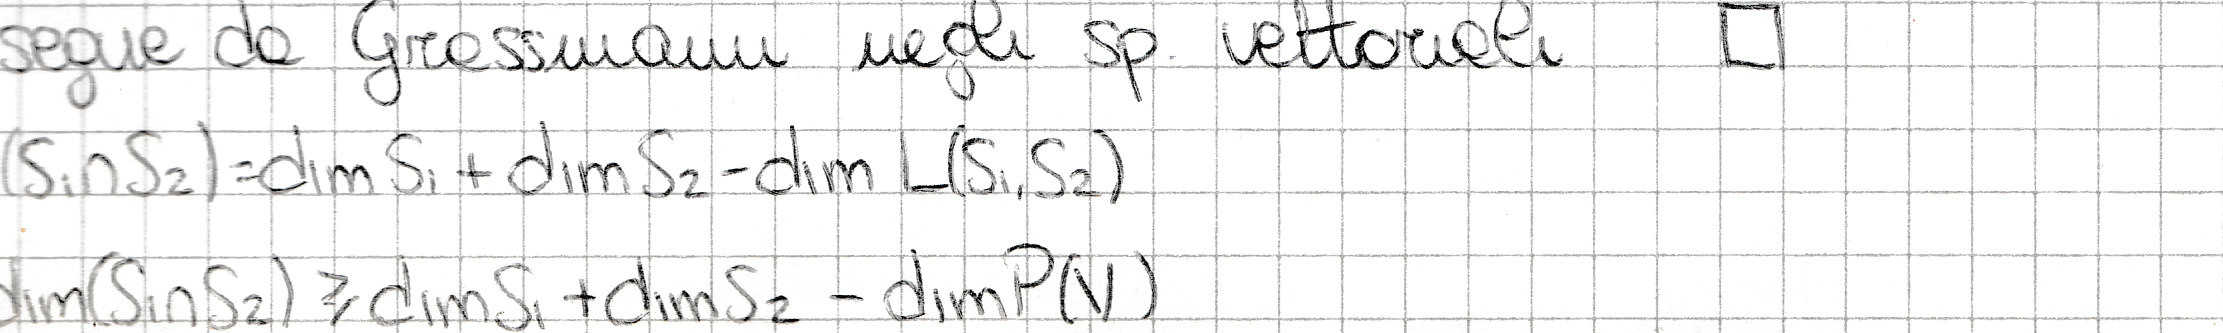 segue da Grassmann negli sp. vettoriali □
(S₁∩S₂)=dim S₁ + dim S₂ - dim L(S₁,S₂)
dim(S₁∩S₂) ⩾ dim S₁ + dim S₂ - dim P(V)